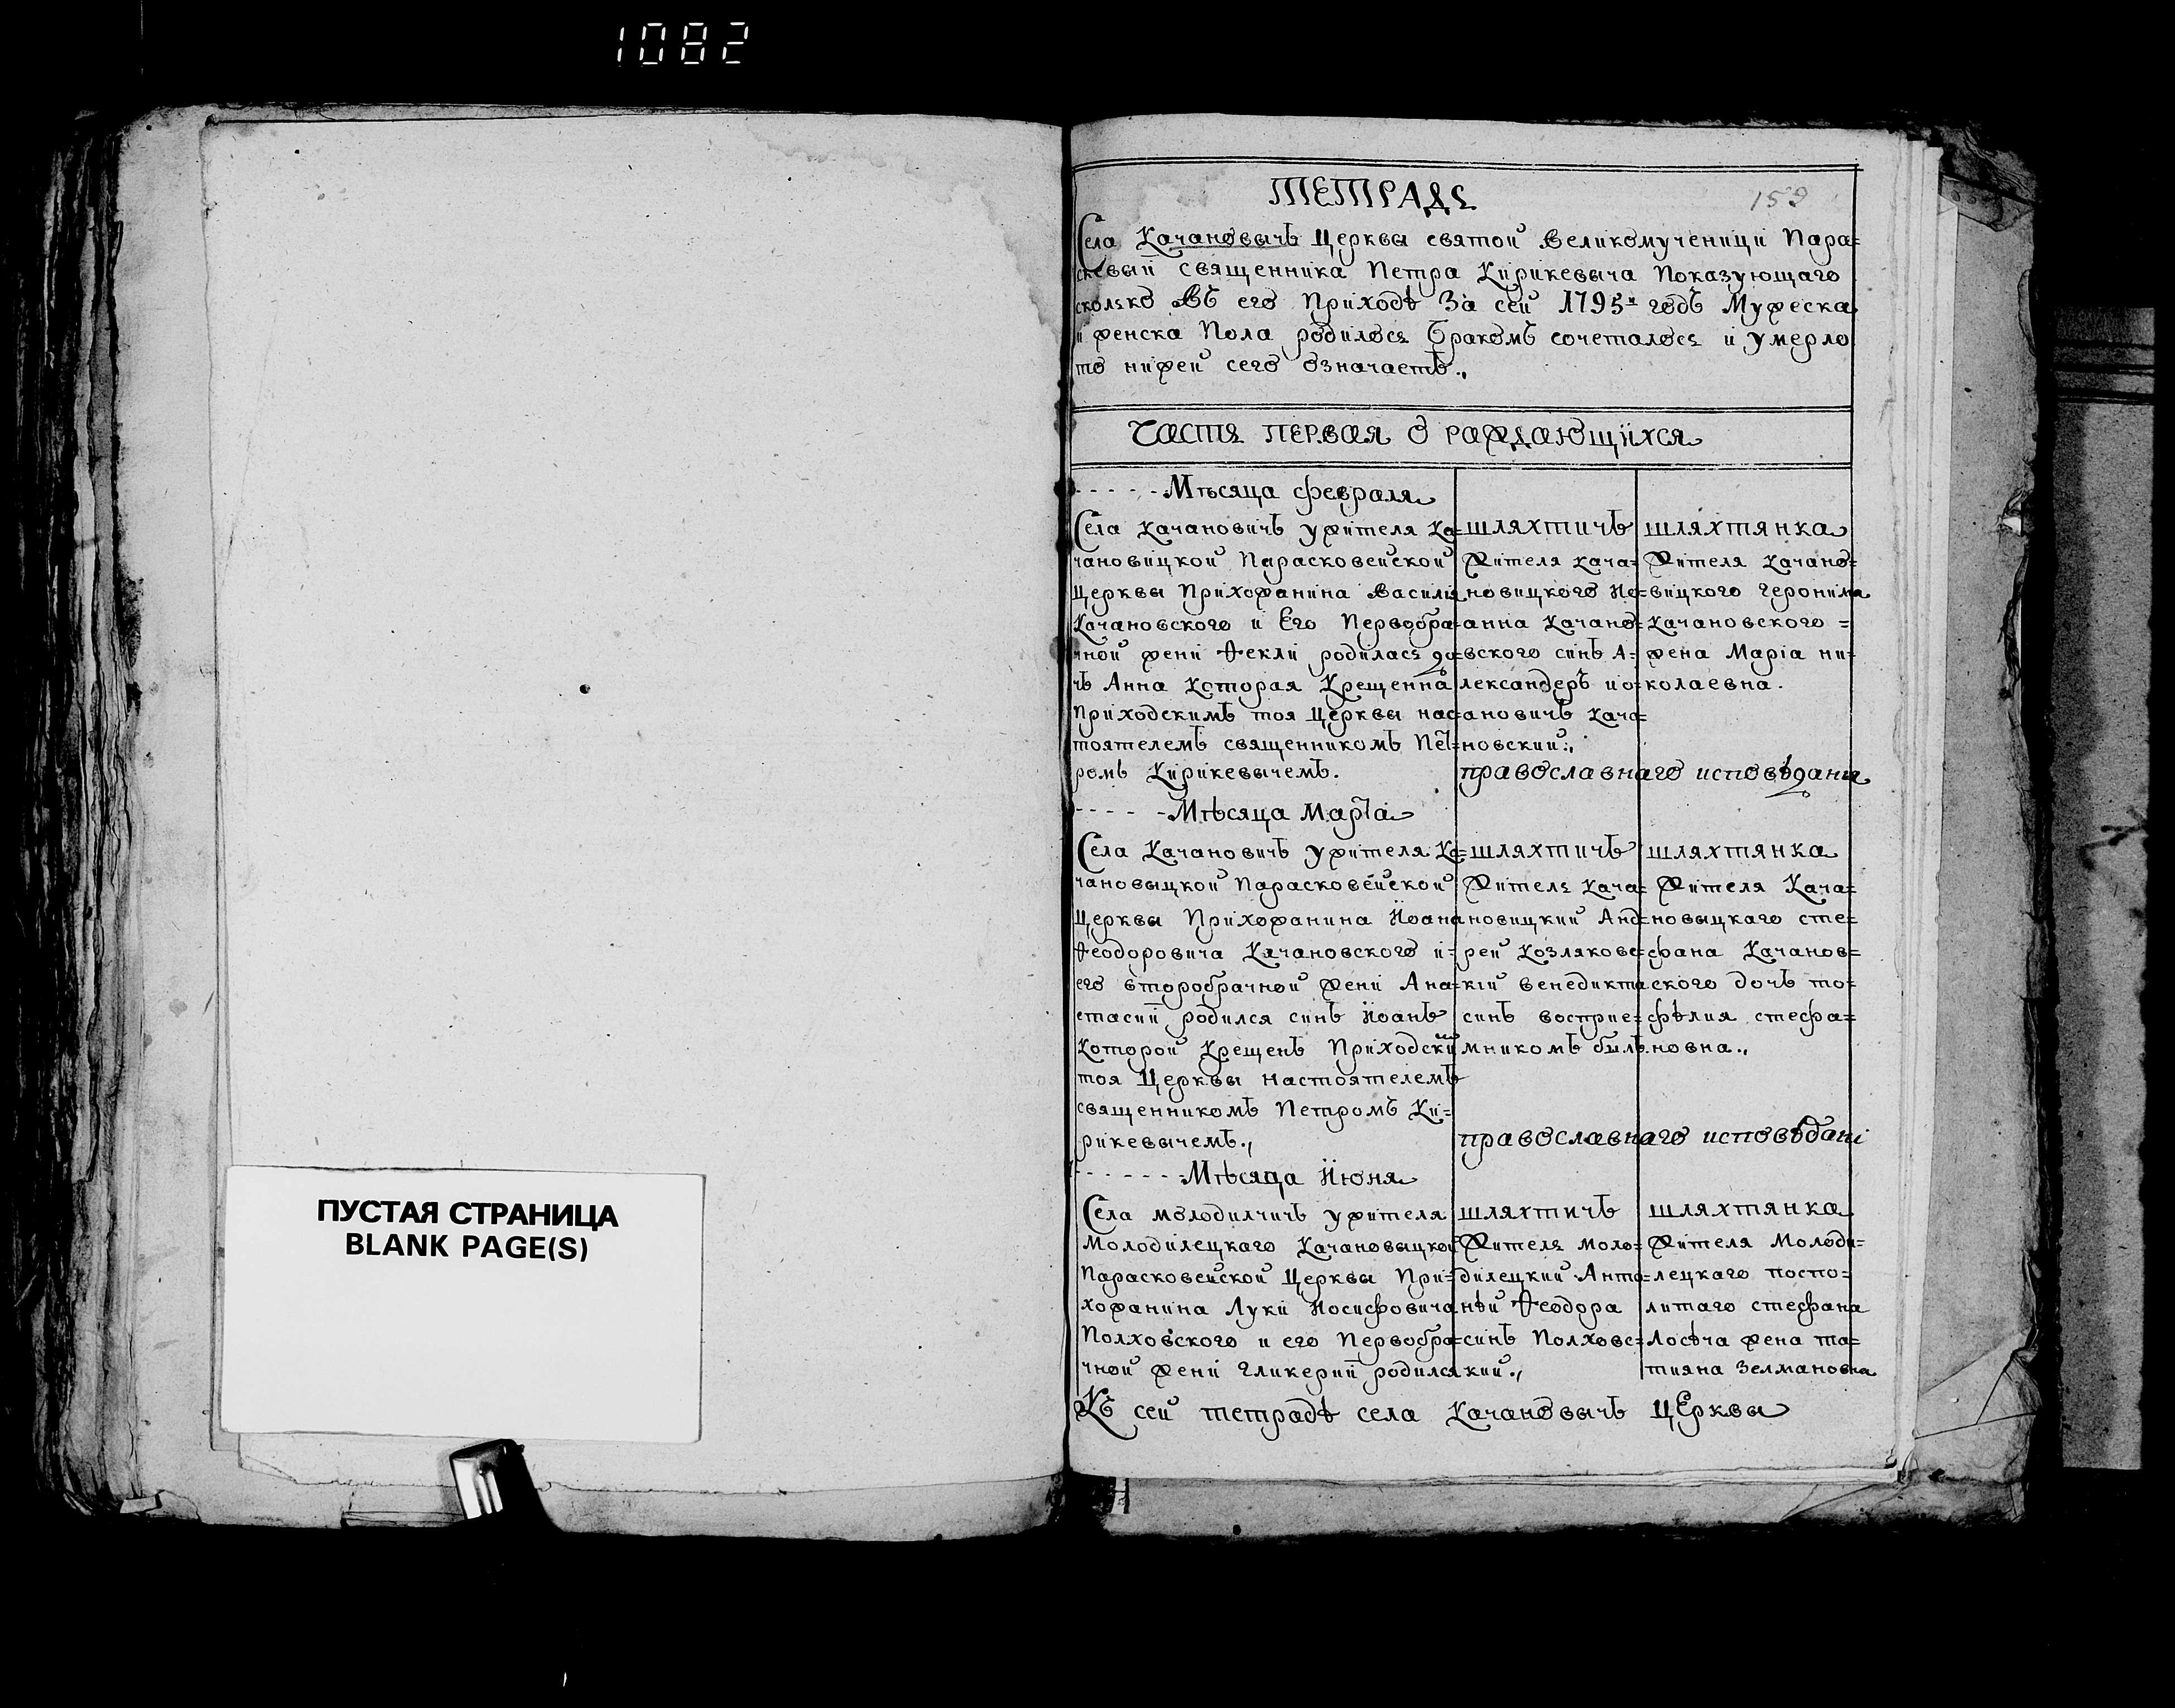 1082
ПУСТАЯ СТРАНИЦА
BLANK PAGE(S)
ТЕТРАДЬ
Села Качановычъ Церквы святой Великомученици Пара=
скевыи священника Петра Кирикевыча Показующаго
сколько Въ его Приходѣ За сей 1795й годъ Мужеска
и женска Пола родилось Бракомъ сочеталось и умерло
то нижей сего означаетъ.,
ЧАСТЬ ПЕРВАЯ О РАЖДАЮЩИХСЯ
Мѣсяца февраля
Села Качановичъ ужителя Ка=
чановицкой Парасковейской
Церквы Прихожанина Василія
Качановского и Его Первобра=
чной жени Ѳекли родилась до=
чъ Анна Которая Крещенна
Приходскимъ тоя Церквы нас=
тоятелемъ священникомъ Пет=
ромъ Кирикевычемъ.
шляхтичъ
Жителя Кача=
новицкого Ио=
анна Качано=
вского синъ А=
лександеръ ио=
ановичъ Кача=
новский.,
шляхтянка
Жителя Качано=
вицкого Геронима
Качановского =
жена Маріа ни=
колаевна.
православнаго исповѣдания
Мѣсяца Марта
Села Качановичъ ужителя Ка=
чановыцкой Парасковейской
Церквы Прихожанина Іоана
Ѳеодоровича Качановского и=
его второбрачной жени Ана=
стасии родился синъ Іоанъ
Которой Крещенъ Приходский
тоя Церквы настоятелемъ
священникомъ Петромъ Ки=
рикевычемъ.,
шляхтичъ
Житель Кача=
новицкий Анд=
рей Козляковс=
кій венедикта
синъ восприе=
мникомъ былъ
шляхтянка
Жителя Кача=
новыцкаго сте=
фана Качанов=
ского дочъ то=
фѣлия стефа=
новна.,
православнаго исповѣдані
Мѣсяца Июня
Села молодилчичъ ужителя
Молодилецкаго Качановыцкой
Парасковейской Церквы При=
хожанина Луки Иосифовича
Полховского и его Первобра=
чной жени Гликерии родился
шляхтичъ
Житель моло=
дилецкий Анто=
нѣй Ѳеодора
синъ Полховс=
кий.,
шляхтянка
Жителя Молоди=
лецкаго поспо=
литаго стефана
Лосѣча жена та=
тияна Зелмановна
Къ сей тетрадѣ села Качановычъ Церквы